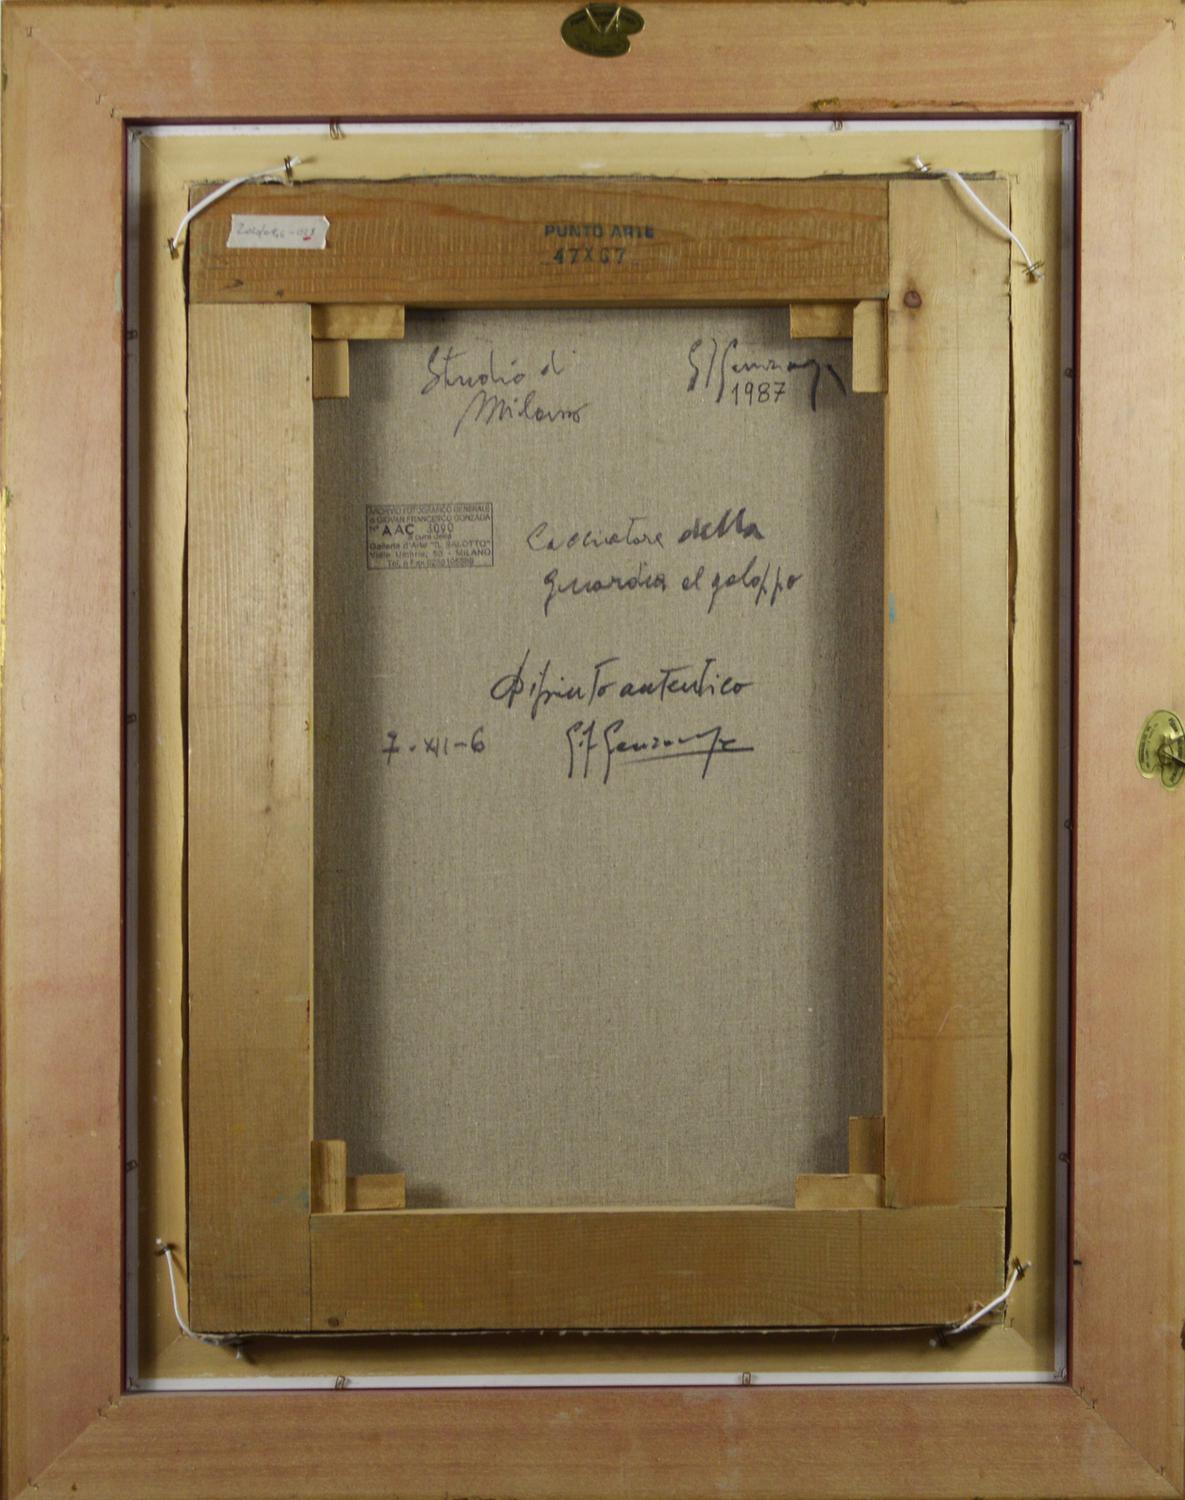 PUNTO ARTE
47X67
Studio di
Milano
1987
ARCHIVIO FOTOGRAFICO GENERALE
di GIOVAN FRANCESCO GONZAGA
N° AAC 3090
a cura della
Galleria d'Arte "IL SALOTTO"
Viale Umbria, 50 - MILANO
Cacciatore della
guardia al galoppo
Dipinto autentico
7-XII-6
G.f. Gonzaga